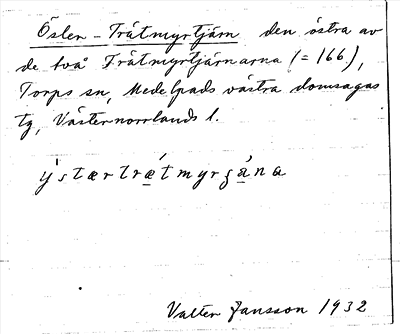 Östen - Tråtmyrtjärn den östra av
de två Tråtmyrtjärnarna (= 166),
Torps sn, Medelpads västra domsagas
tg, Västernorrlands l.
Valter Jansson 1932